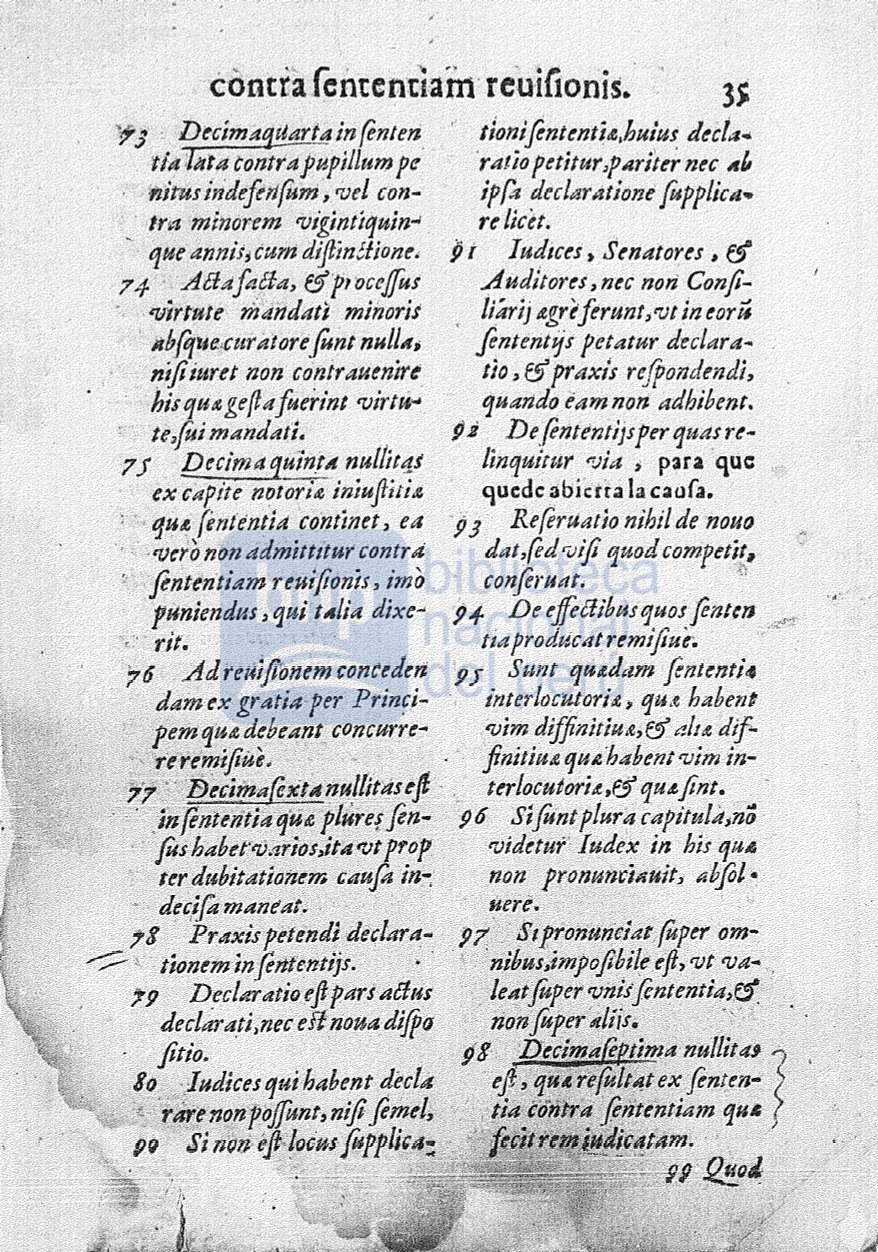 contra ſententiam reuiſionis. 35
73 Decimaquarta in ſenten
tia lata contra pupillum pe
nitus indefenſum, vel con-
tra minorem vigintiquin-
que annis, cum diſtinctione.
74 Acta facta, & proceſſus
virtute mandati minoris
abſque curatore ſunt nulla,
niſi iuret non contrauenire
his quæ geſta fuerint virtu-
te, ſui mandati.
75 Decima quinta nullitas
ex capite notoriæ iniuſtitiæ
quæ ſententia continet, ea
verò non admittitur contra
ſententiam reuiſionis, imò
puniendus, qui talia dixe-
rit.
76 Ad reuiſionem conceden
dam ex gratia per Princi-
pem quæ debeant concurre-
re remiſiuè.
77 Decimaſexta nullitas eſt
in ſententia quæ plures ſen-
ſus habet varios, ita vt prop
ter dubitationem cauſa in-
deciſa maneat.
78 Praxis petendi declara-
tionem in ſententijs.
79 Declaratio eſt pars actus
declarati, nec eſt noua diſpo
ſitio.
80 Iudices qui habent decla
rare non poſſunt, niſi ſemel,
90 Si non eſt locus ſupplica-
tioni ſententiæ, huius decla-
ratio petitur, pariter nec ab
ipſa declaratione ſupplica-
re licet.
91 Iudices, Senatores, &
Auditores, nec non Conſi-
liarij ægrè ferunt, vt in eorũ
ſententijs petatur declara-
tio, & praxis reſpondendi,
quando eam non adhibent.
92 De ſententijs per quas re-
linquitur via, para que
quede abierta la cauſa.
93 Reſeruatio nihil de nouo
dat, ſed viſi quod competit,
conſeruat.
94 De effectibus quos ſenten
tia producat remiſiue.
95 Sunt quædam ſententiæ
interlocutoriæ, quæ habent
vim diffinitiuæ, & aliæ dif-
finitiuæ quæ habent vim in-
terlocutoriæ, & quæ ſint.
96 Si ſunt plura capitula, nõ
videtur Iudex in his quæ
non pronunciauit, abſol-
uere.
97 Si pronunciat ſuper om-
nibus, impoſibile eſt, vt va-
leat ſuper vnis ſententia, &
non ſuper alijs.
98 Decimaſeptima nullitas
eſt, quæ reſultat ex ſenten-
tia contra ſententiam quæ
fecit rem iudicatam.
99 Quod
biblioteca
nacional
del Perú